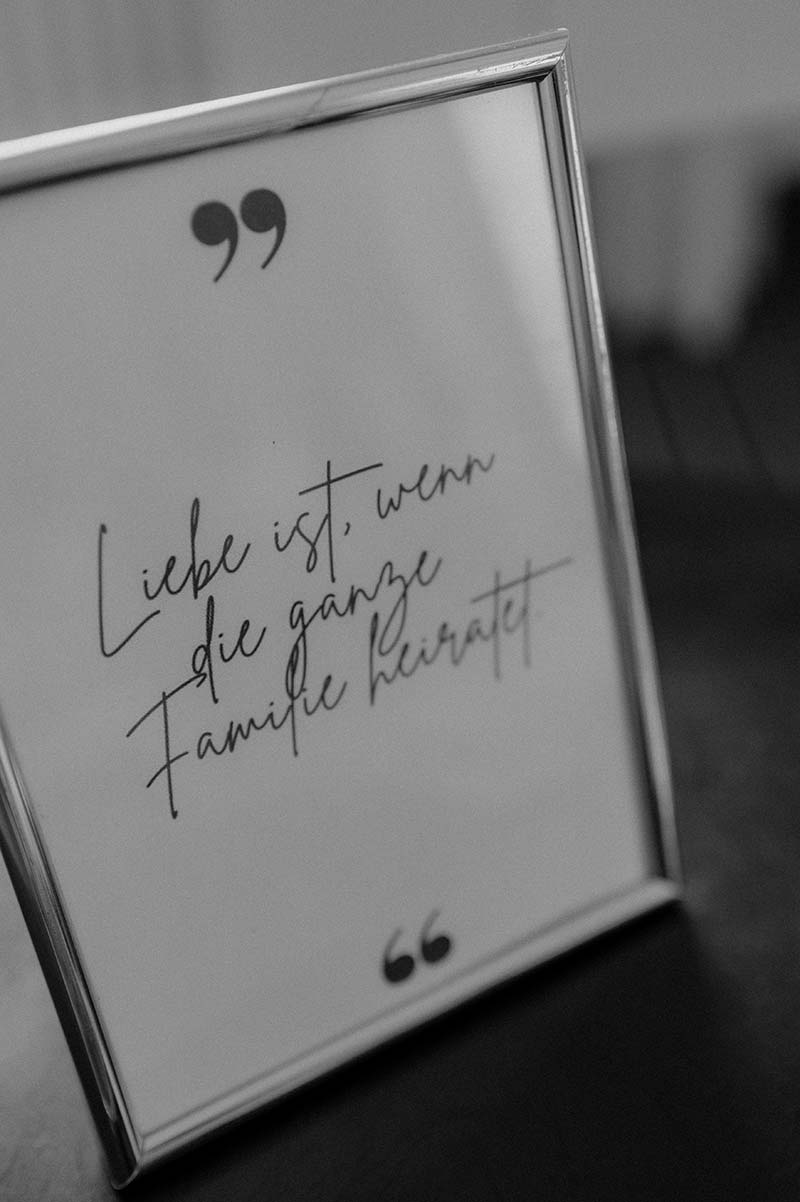 ”
Liebe ist, wenn
die ganze
Familie heiratet.
“